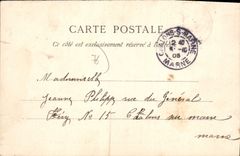 CARTE POSTALE
Ce côté est exclusivement réservé à l'
CHALONS-S-MARNE
MARNE
Mademoiselle
Jeanne Philipp rue du Général
Féry No 15 Châlons sur marne
marne